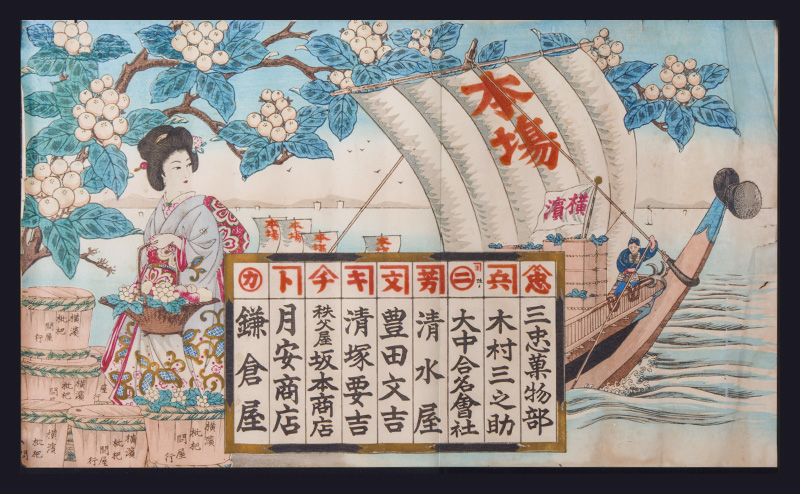 本場
横濱
本場
本場
本場
本場
忠
三忠菓物部
兵
木村三之助
二
大中合名會社
芳
清水屋
文
豊田文吉
キ
清塚要吉
チ
秩父屋
坂本商店
ト
月安商店
カ
鎌倉屋
横濱
枇杷
問屋
横濱
枇杷
問屋
横濱
枇杷
問屋
行
横濱
枇杷
問屋
行
横濱
枇杷